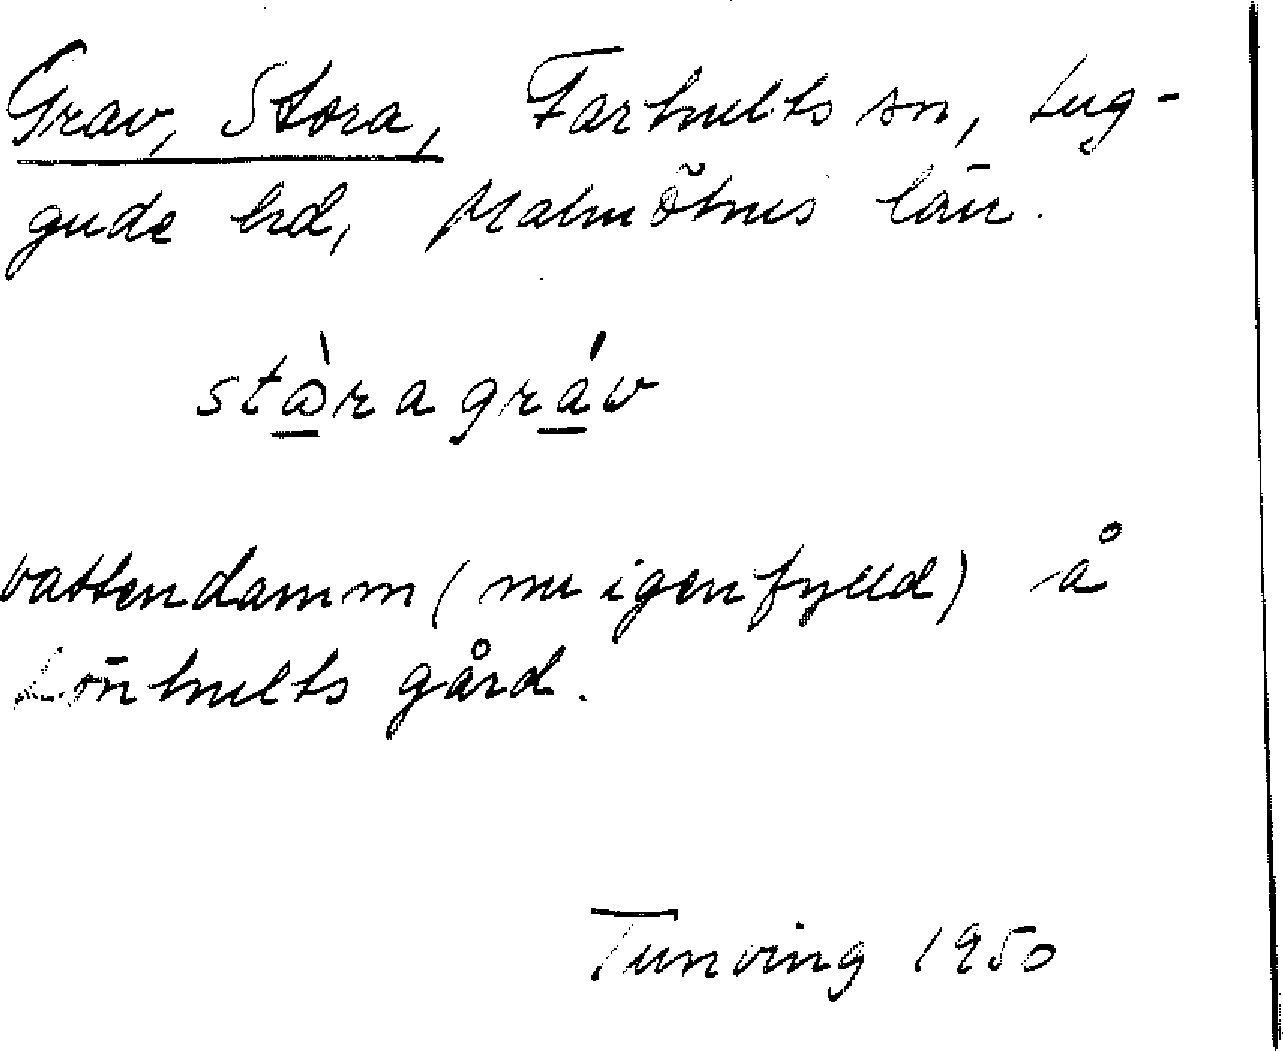 Grav, Stora, Farhults sn, Lug-
gude hd, Malmöhus län.
stɷ̀ragráv
vattendamm (nu igenfylld) å
Lönhults gård.
Tunving 1950